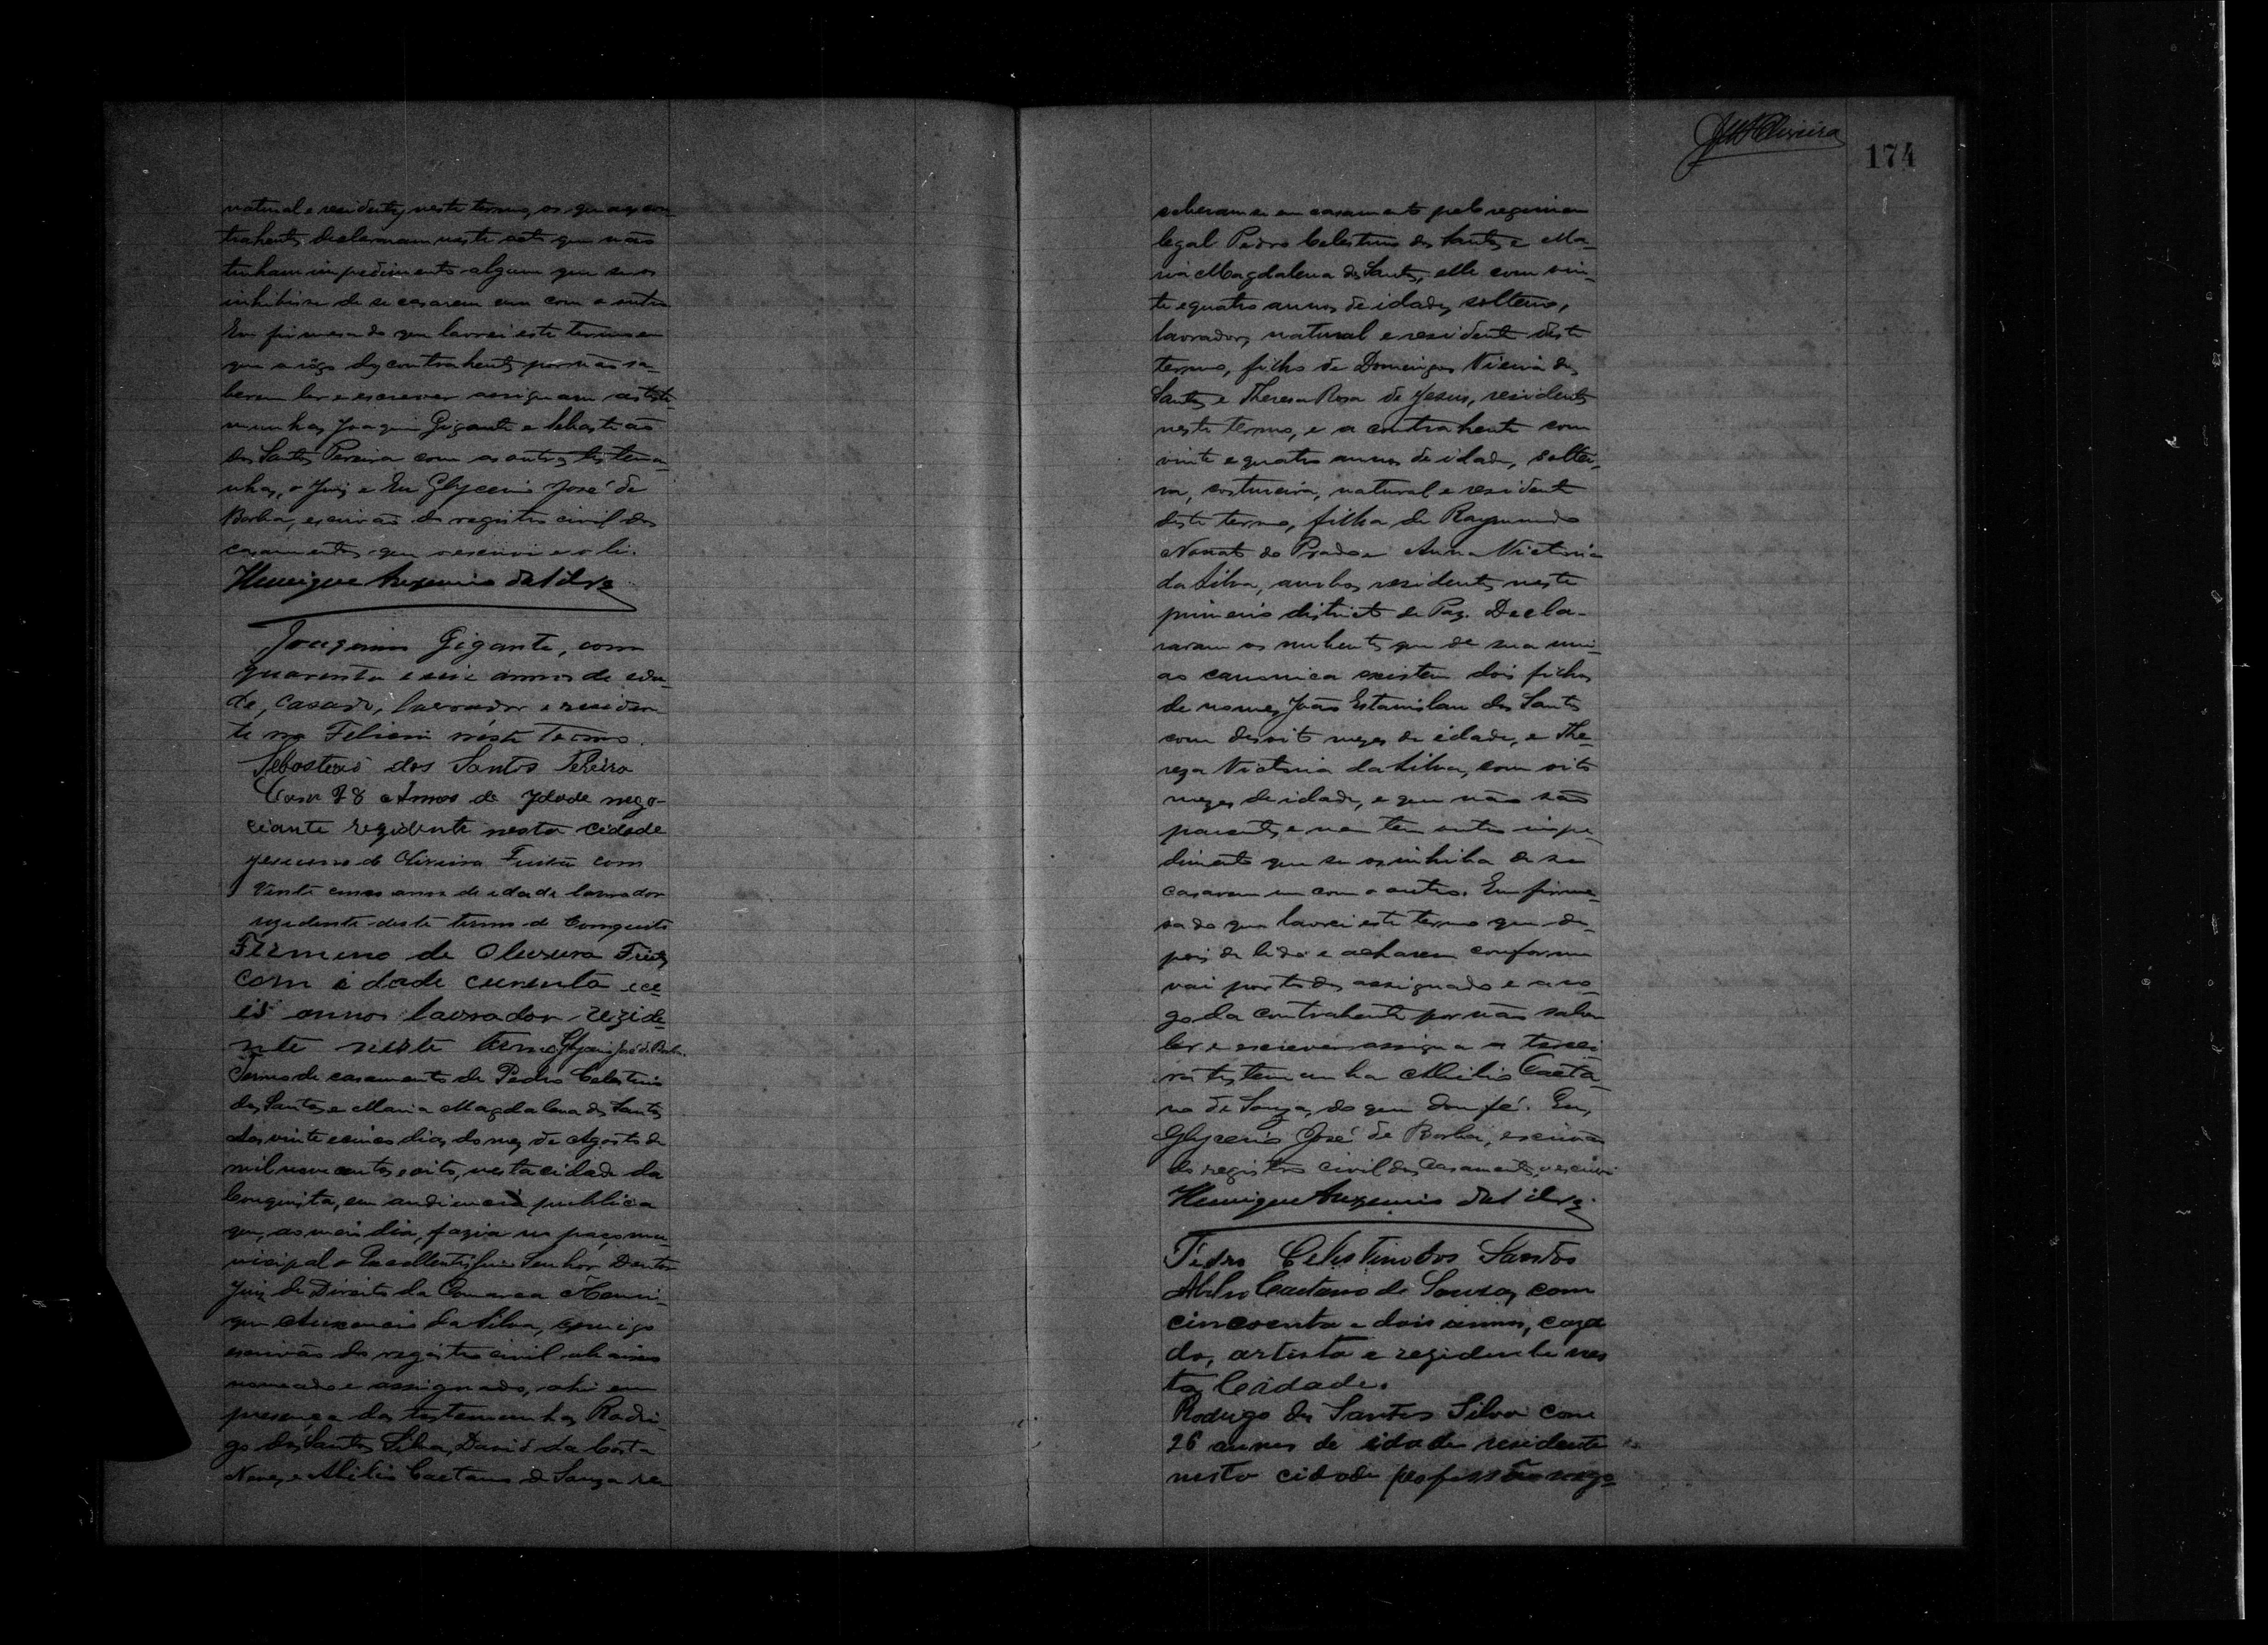 natural e residentes neste termo, os quaes con-
trahentes declararam neste acto que não
tinham impedimento algum que se os
inhibisse de se casarem um com o outro
Em firmesa do que lavrei este termo em
que a rôgo dos contrahentes por não sa-
berem ler e escrever assignam as teste-
munhas Joaquim Gigante e Sebastião
dos Santos Pereira com as outras testemu-
nhas, o Juiz e Eu Glycerio José de
Borba, escrivão do registro civil dos
casamentos que o escrevi e o li.
Henrique Auxencio da Silva
Joaquim Gigante, com
quarenta e seis annos de eda-
de, casado, lavrador e residen-
te na Feliceni néste Termo.
Sebosteão dos Santos Pereira
Com 28 Annos de Ydade nego-
ciante rezidente nesta cidade
Jesuino de Oliveira Freitas com
Vinte cinco annos de idade lavrador
rezidente deste termo de Conquista
Firmino de Oliveira Freitas
com idade cuarenta e ce-
is annos lavrador rezide-
nte neste termo Glycerio José de Borba.
Termo de casamento de Pedro Celestino
dos Santos e Maria Magdalena dos Santos
Aos vinte e cinco dias do mez de Agosto de
mil nove centos e oito, nesta cidade da
Conquista, em audiencia publica
que, ao meio dia, fazia no paço mu-
nicipal o Excellentissimo Senhor Doutor
Juiz de Direito da Comarca Henri-
que Auxencio da Silva, commigo
escrivão do registro civil abaixo
nomeado e assignado, ahi em
presença das testemunhas Rodri-
go dos Santos Silva, David da Costa
Neves e Abilio Caetano de Souza re-
JMS Oliveira
174
ceberam-se em casamento pelo regimen
legal Pedro Celestino dos Santos e Ma-
ria Magdalena dos Santos, elle com vin-
te e quatro annos de idade, solteiro,
lavrador, natural e residente deste
termo, filho de Domingos Vieira dos
Santos e Theresa Rosa de Jesus, residentes
neste termo, e a contrahente com
vinte e quatro annos de idade, soltei-
ra, costureira, natural e residente
deste termo, filha de Raymundo
Nonato do Prado e Anna Victoria
da Silva, ambos residentes neste
primeiro districto de Paz. Decla-
raram os nubentes que de sua uni-
ao canonica existem dois filhos
de nomes João Estanislau dos Santos
com desoito mezes de idade, e The-
reza Victoria da Silva, com oito
mezes de idade, e que não são
parentes e nem tem outro impe-
dimento que se os inhiba de se
casarem um com o outro. Em firme-
sa do que lavrei este termo que de-
pois de lido e acharem conforme
vai por todos assignado e a ro-
go da contrahente por não saber
ler e escrever assigna a tercei-
ra testemunha Abilio Caeta-
no de Souza, do que dou fé. Eu,
Glycerio José de Borba, escrivão
do registro civil dos casamentos, o escrevi
Henrique Auxencio da Silva.
Pedro Celestino dos Santos
Abilio Caetano de Souza, com
cincoenta e dois annos, caza
do, artista e rezidente nes
ta Ceidade.
Rodrigo dos Santos Silva com
26 annos de idade residente
nesta cidade profissão nego-